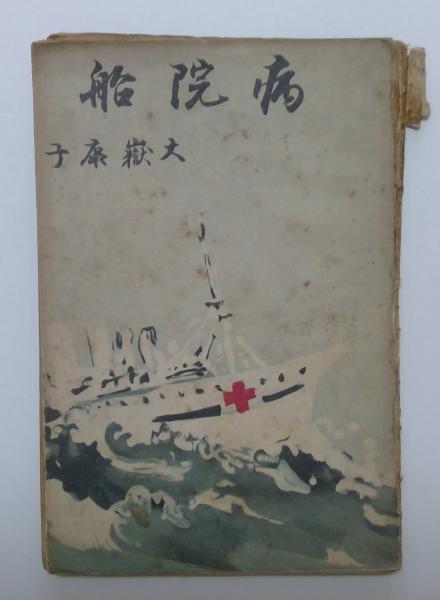 病院船
大嶽康子